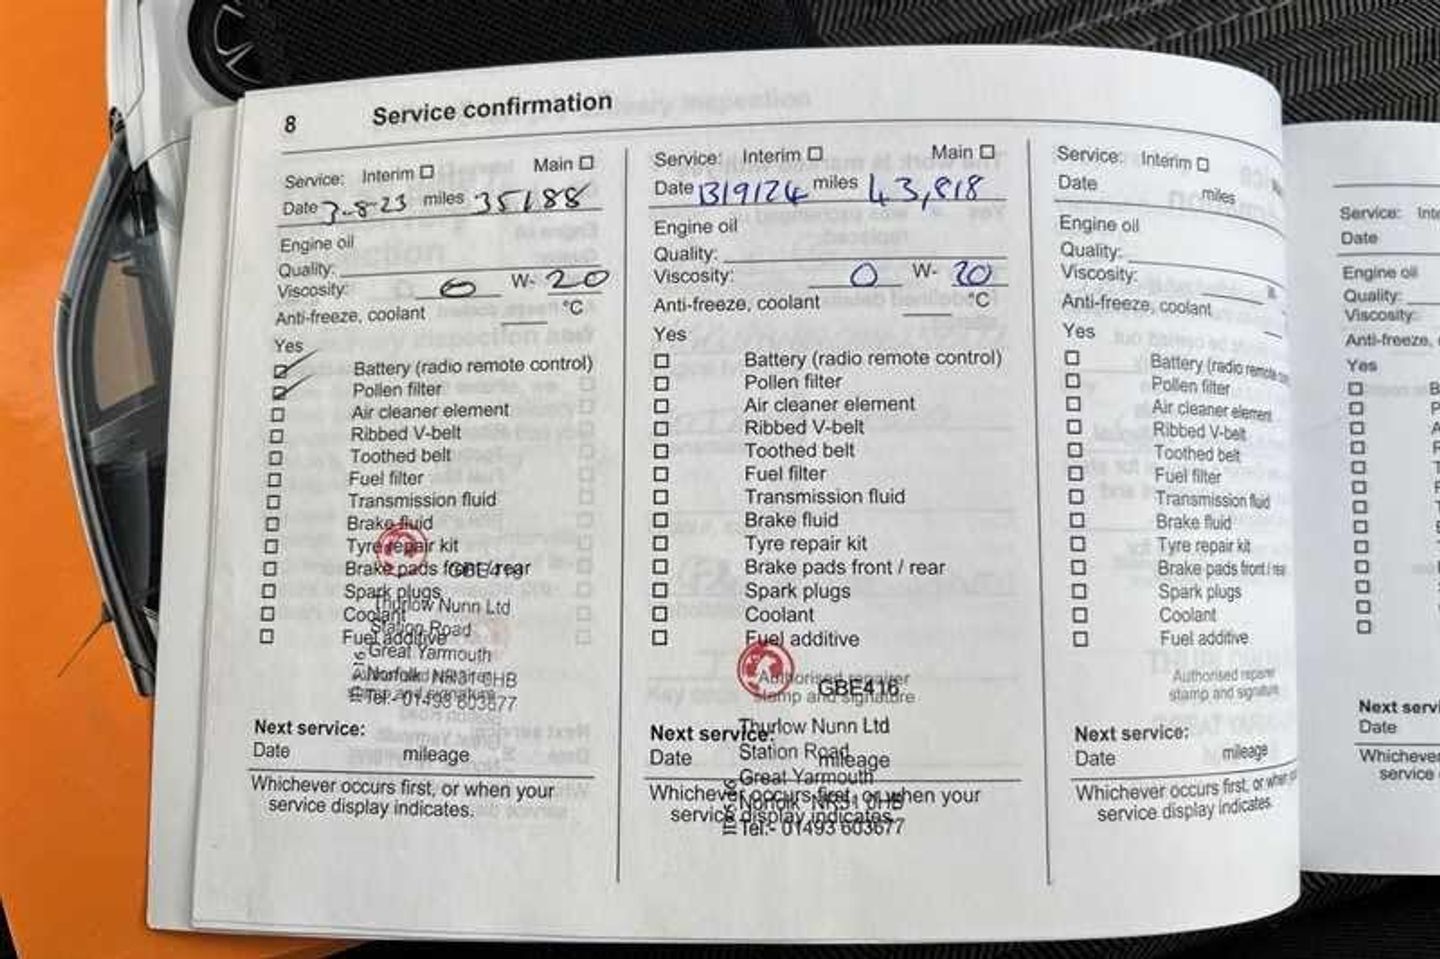 8 Service confirmation
Service: Interim Main
Date 3-8-23 miles 35188
Engine oil
Quality:
Viscosity: 0 W- 20
Anti-freeze, coolant °C
Yes
Battery (radio remote control)
Pollen filter
Air cleaner element
Ribbed V-belt
Toothed belt
Fuel filter
Transmission fluid
Brake fluid
Tyre repair kit
Brake pads front / rear
GBE416
Spark plugs
Thurlow Nunn Ltd
Coolant
Station Road
Fuel additive
Great Yarmouth
Norfolk NR31 0HB
stamp and signature
Tel:- 01493 603677
Next service:
Date mileage
Whichever occurs first, or when your
service display indicates.
Service: Interim Main
Date 13/9/24 miles 43,818
Engine oil
Quality:
Viscosity: 0 W- 20
Anti-freeze, coolant °C
Yes
Battery (radio remote control)
Pollen filter
Air cleaner element
Ribbed V-belt
Toothed belt
Fuel filter
Transmission fluid
Brake fluid
Tyre repair kit
Brake pads front / rear
Spark plugs
Coolant
Fuel additive
Authorised repairer
GBE416
stamp and signature
Thurlow Nunn Ltd
Next service:
Station Road
Date mileage
Great Yarmouth
Whichever occurs first, or when your
Norfolk NR31 0HB
service display indicates.
Tel:- 01493 603677
Service: Interim
Date miles
Engine oil
Quality:
Viscosity:
Anti-freeze, coolant
Yes
Battery (radio remote
Pollen filter
Air cleaner element
Ribbed V-belt
Toothed belt
Fuel filter
Transmission fluid
Brake fluid
Tyre repair kit
Brake pads front / rear
Spark plugs
Coolant
Fuel additive
Authorised repairer
stamp and signature
Next service:
Date mileage
Whichever occurs first, or when
service display indicates.
Service: Inte
Date
Engine oil
Quality:
Viscosity:
Anti-freeze,
Yes
Next servi
Date
Whichever
service